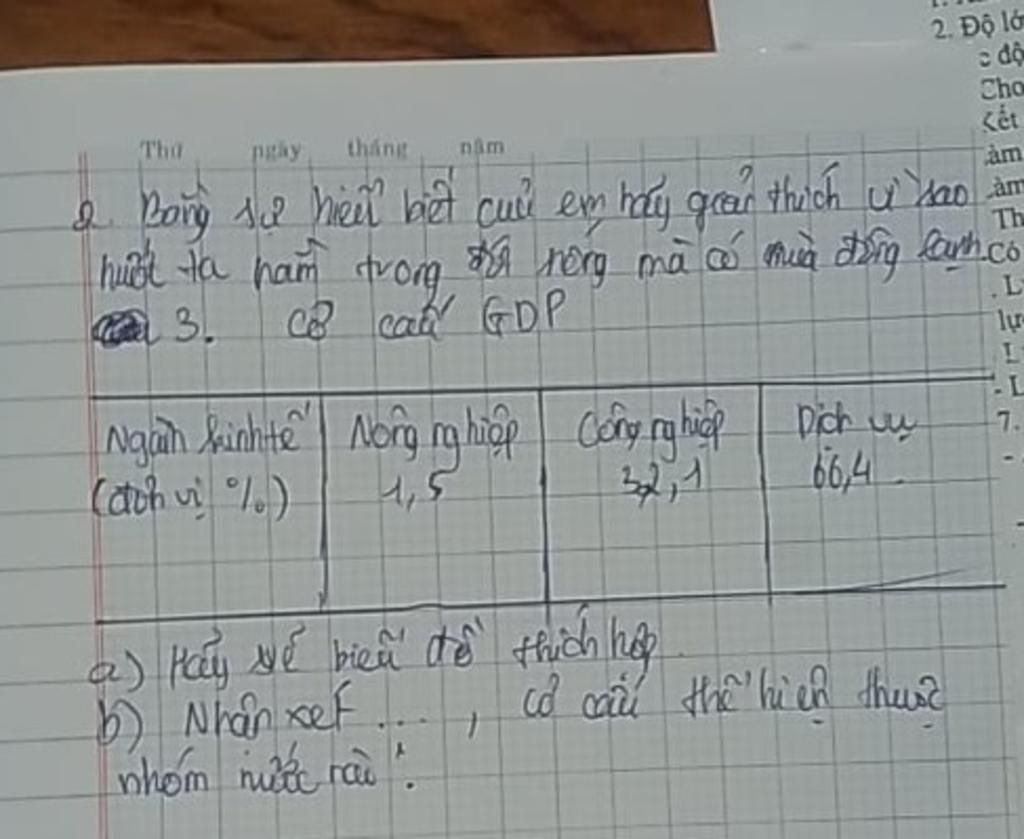 2. Độ lớ
c độ
Cho
Kết
àm
àm
Th
Có
. L
lực
L
- L
7.
-
Thứ ngày tháng năm
2. Bằng sự hiểu biết của em hãy giải thích vì sao
nước ta nằm trong đới nóng mà có mùa đông lạnh
3. Cơ cấu GDP
Ngành kinh tế Nông nghiệp Công nghiệp Dịch vụ
(đơn vị %) 1,5 32,1 66,4
a) Hãy vẽ biểu đồ thích hợp
b) Nhận xét ...., cơ cấu thể hiện thuộc
nhóm nước nào.